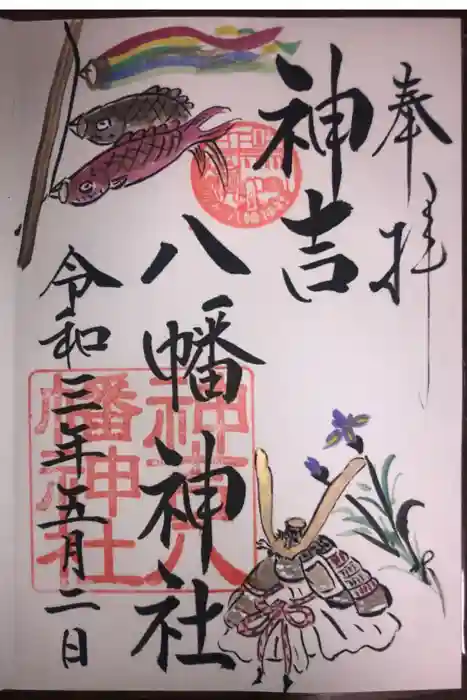 奉拝
神吉
八幡神社
令和三年五月二日
神吉八
幡神社